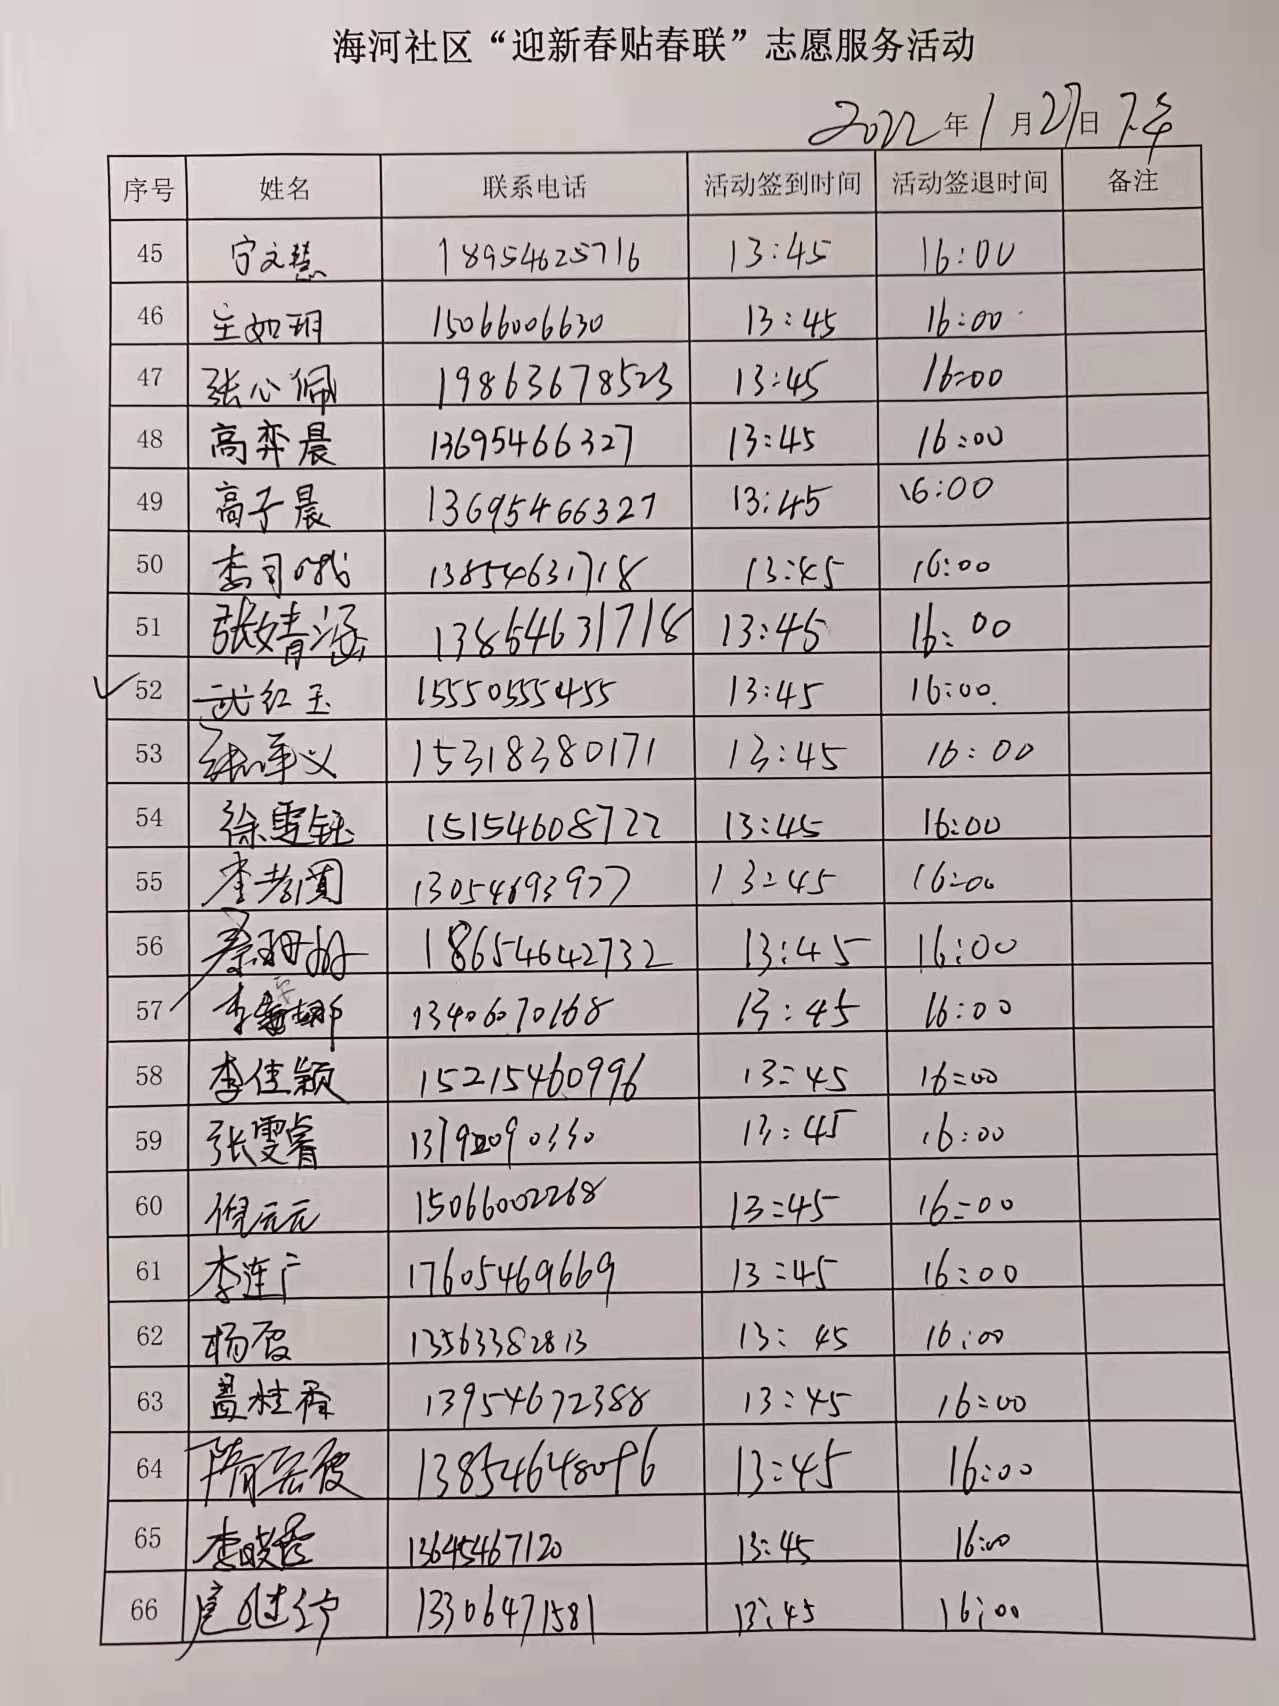 海河社区“迎新春贴春联”志愿服务活动
2022年1月27日 下午
序号 姓名 联系电话 活动签到时间 活动签退时间 备注
45 宁文慧 18954625716 13:45 16:00
46 王如玥 15066006630 13:45 16:00
47 张心佩 19863678523 13:45 16:00
48 高弈晨 13695466327 13:45 16:00
49 高子晨 13695466327 13:45 16:00
50 李司晗 13854631718 13:45 16:00
51 张婧涵 13854631718 13:45 16:00
52 武红玉 15550555455 13:45 16:00
53 张军义 15318380171 13:45 16:00
54 徐雯钰 15154608722 13:45 16:00
55 13054693977 13:45 16:00
56 18654642732 13:45 16:00
57 李娜 13406070168 13:45 16:00
58 李佳颖 15215460996 13:45 16:00
59 张雯睿 13792090330 13:45 16:00
60 倪元元 15066002268 13:45 16:00
61 李连广 17605469669 13:45 16:00
62 杨霞 13563382813 13:45 16:00
63 盖桂香 13954672388 13:45 16:00
64 隋 霞 13854648096 13:45 16:00
65 李晓 13645467120 13:45 16:00
66 13306471581 13:45 16:00